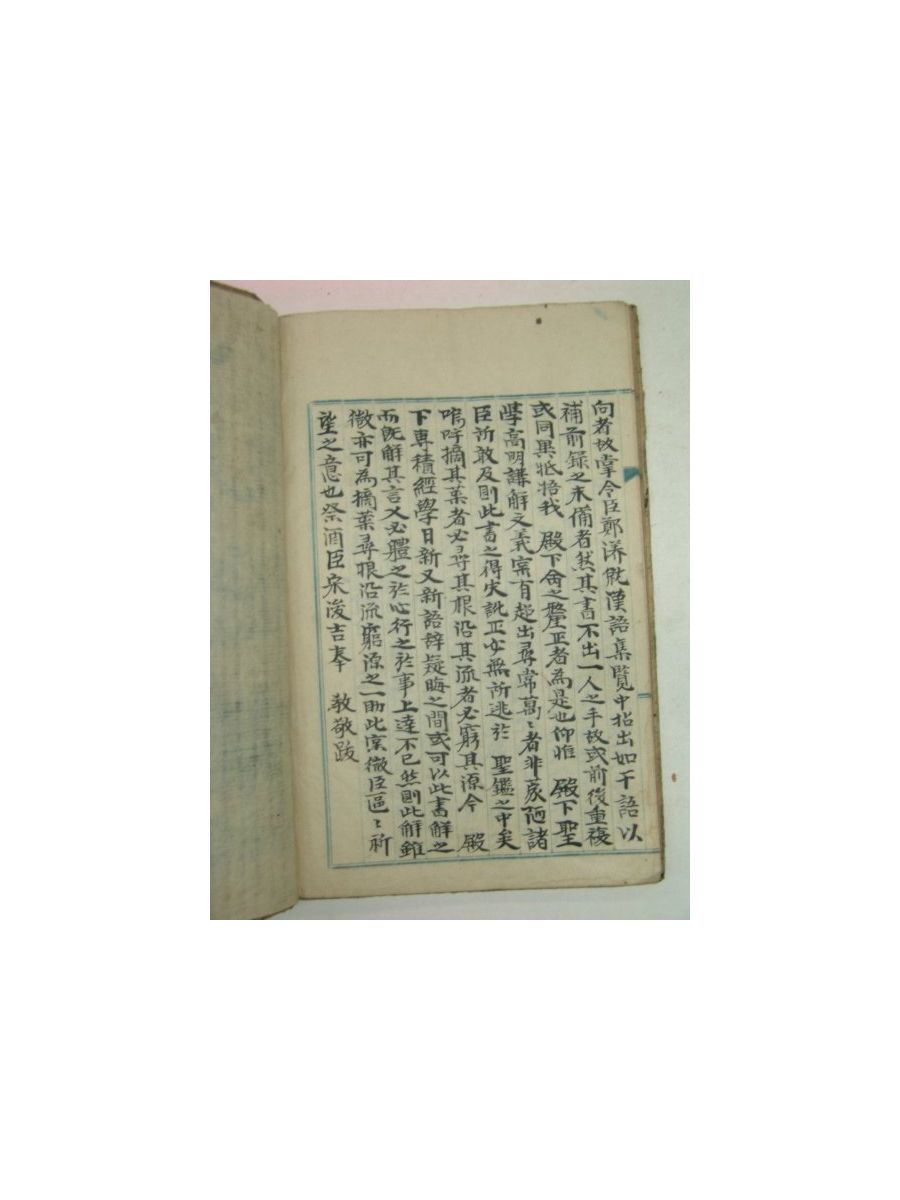 向者故掌令臣鄭瀁就漢語集覽中拈出如干語以
補前錄之未備者然其書不出一人之手故或前後重複
或同異牴牾我 殿下命之釐正者為是也仰惟 殿下聖
學高明講解文義寔有超出尋常萬〻者非蒙陋諸
臣所敢及則此書之得失訛正必無所逃於 聖鑑之中矣
嗚呼摘其葉者必尋其根沿其流者必窮其源今 殿
下專積經學日新又新語辭疑晦之間或可以此書解之
而旣解其言又必體之於心行之於事上達不已然則此解雖
微亦可為摘葉尋根沿流窮源之一助此寔微臣區〻祈
望之意也祭酒臣宋浚吉奉 敎敬跋